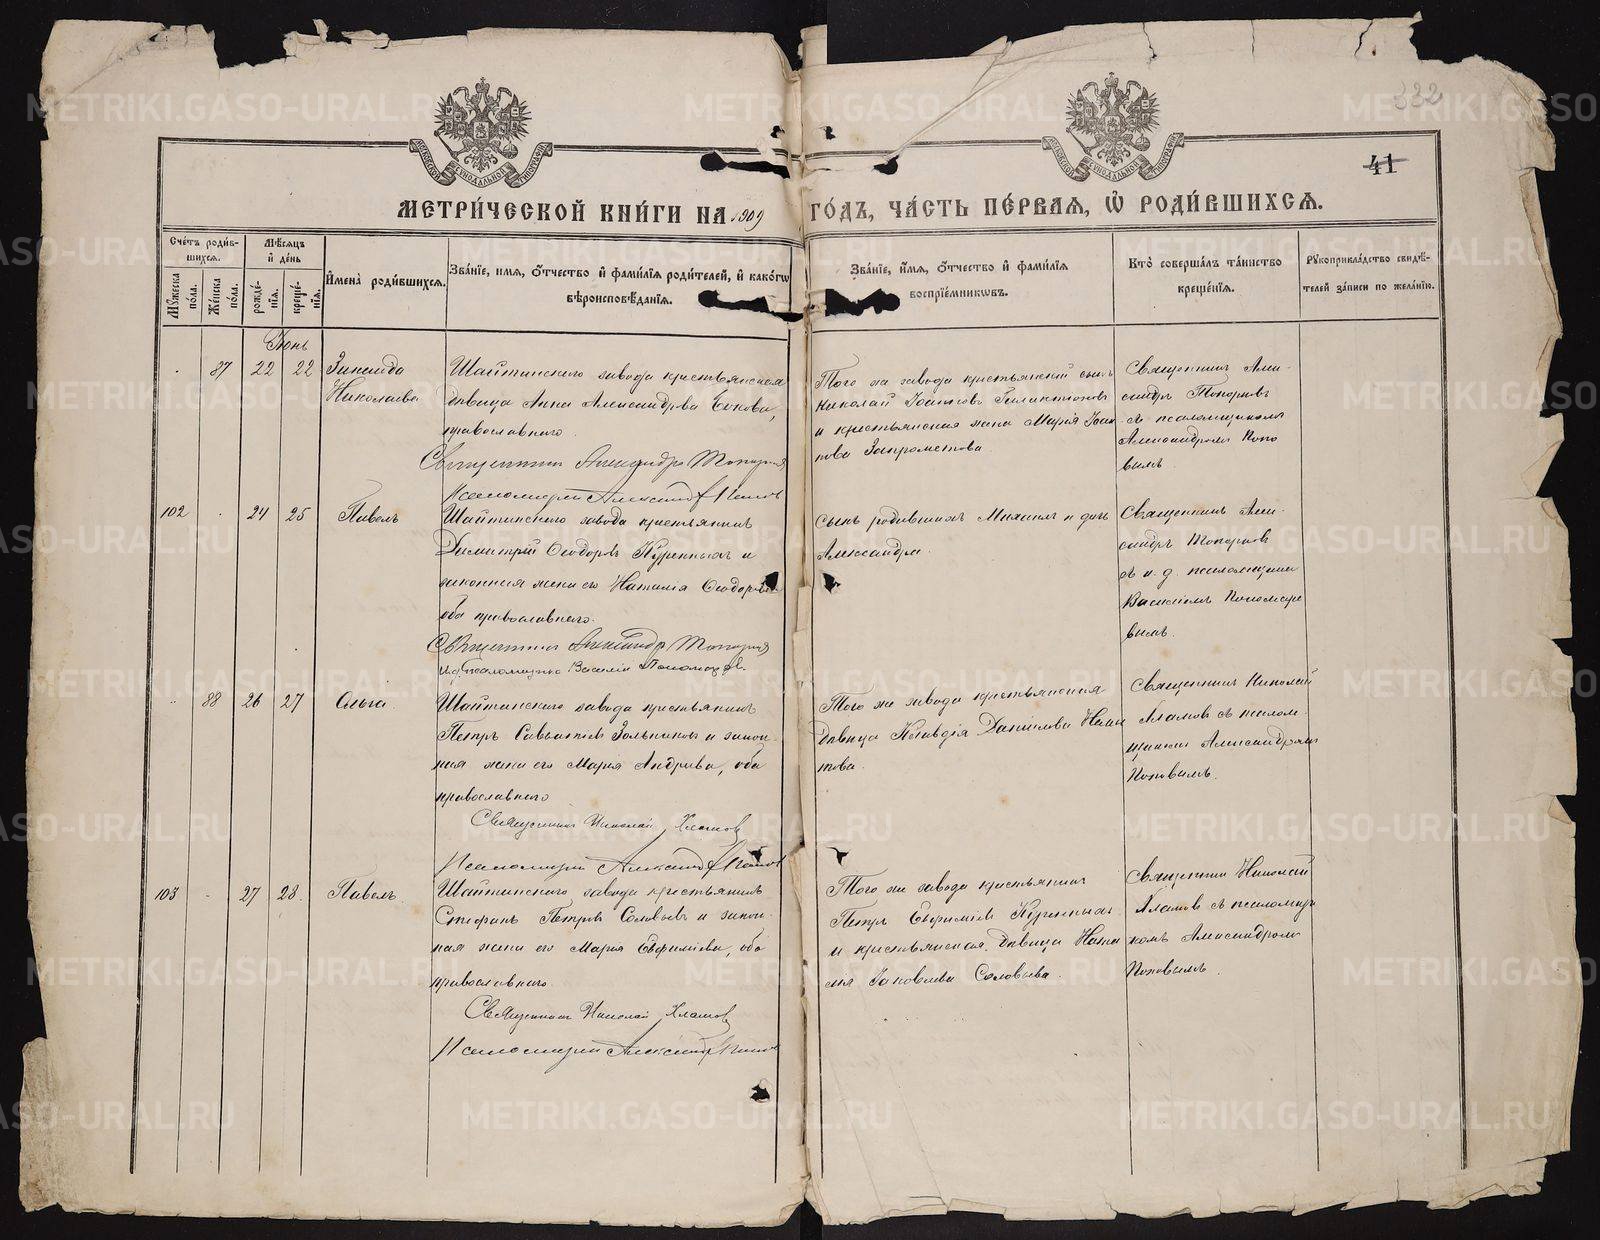 332
41
МОСКОВСКОЙ СѴНОДАЛЬНОЙ ТИПОГРАФІИ
МОСКОВСКОЙ СѴНОДАЛЬНОЙ ТИПОГРАФІИ
МЕТРИ́ЧЕСКОЙ КНИ́ГИ НА 1909 ГО́ДЪ, ЧА́СТЬ ПЕ́РВАЯ, Ѽ РОДИ́ВШИХСѦ.
Сче́тъ роди́в-
шихсѧ.
Мꙋ́жеска по́ла.
Же́нска по́ла.
Мѣ́сѧцъ
и҆ де́нь
рожде́нїѧ.
креще́нїѧ.
И҆мена̀ роди́вшихсѧ.
Зва́нїе, и҆́мѧ, ѻ҆́тчество и҆ фами́лїѧ роди́телей, и҆ како́гѡ
вѣроисповѣ́данїѧ.
Зва́нїе, и҆́мѧ, ѻ҆́тчество и҆ фами́лїѧ
воспрїе́мникѡвъ.
Кто̀ соверша́лъ та́инство
креще́нїѧ.
Рꙋкоприкла́дство свидѣ́-
телей за́писи по жела́нїю.
Іюнь
87 22 22 Зинаида
Николаева
Шайтанскаго завода крестьянская
дѣвица Анна Александрова
православнаго.
Священникъ Александръ Топорковъ
Псаломщикъ Александръ Поповъ
Того же завода крестьянскій сынъ
Николай Іоанновъ
и крестьянская жена Марія Іоан-
нова Запрометова.
Священникъ Але-
ксандръ Топорковъ
съ псаломщикомъ
Александромъ Попо-
вымъ.
102 24 25 Павелъ
Шайтанскаго завода крестьянинъ
Димитрій Ѳеодоровъ Куренныхъ и
законная жена его Наталія Ѳеодорова
оба православнаго.
Священникъ Александръ Топорковъ
И. д. псаломщика Василій Пономаревъ.
Сынъ родившихъ Михаилъ и дочь
Александра.
Священникъ Але-
ксандръ Топорковъ
съ и. д. псаломщика
Василіемъ Пономаре-
вымъ.
88 26 27 Ольга.
Шайтанскаго завода крестьянинъ
Петръ Савватіевъ Зольниковъ и закон-
ная жена его Марія Андреева, оба
православнаго
Священникъ Николай Хламовъ
Псаломщикъ Александръ Поповъ
Того же завода крестьянская
дѣвица Клавдія Данилова
Священникъ Николай
Хламовъ съ псалом-
щикомъ Александромъ
Поповымъ.
103 27 28 Павелъ
Шайтанскаго завода крестьянинъ
Стефанъ Петровъ Соловьевъ и закон-
ная жена его Марія Евфиміева, оба
православнаго.
Священникъ Николай Хламовъ
Псаломщикъ Александръ Поповъ
Того же завода крестьянинъ
Петръ Евфиміевъ Куренныхъ
и крестьянская дѣвица Ната-
лія Іаковлева Соловьева.
Священникъ Николай
Хламовъ съ псаломщи-
комъ Александромъ
Поповымъ.
METRIKI.GASO-URAL.RU